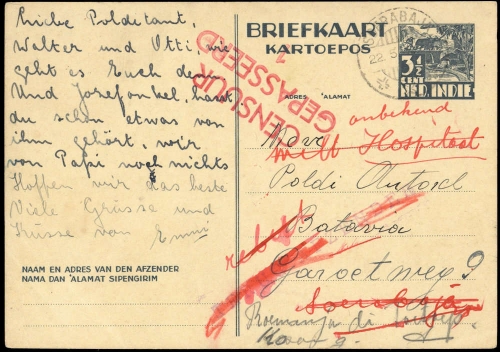 Liebe Poldetant,
Walter und Otti, wie
geht es Euch denn
Und Josefonkel, hast
du schon etwas von
ihm gehört, wir
von Papi noch nichts
Hoffen wir das beste
Viele Grüsse und
Küsse von Emmi
NAAM EN ADRES VAN DEN AFZENDER
NAMA DAN 'ALAMAT SIPENGIRIM
BRIEFKAART
KARTOEPOS
SOERABAJA
22
3½
CENT
NED. INDIE
CENSUUR
GEPASSEERD
1
ADRES 'ALAMAT
onbekend
Mevr
Milt Hospitaal
Poldi
Batavia
retour
Garoetweg 9
Soerabaja
di